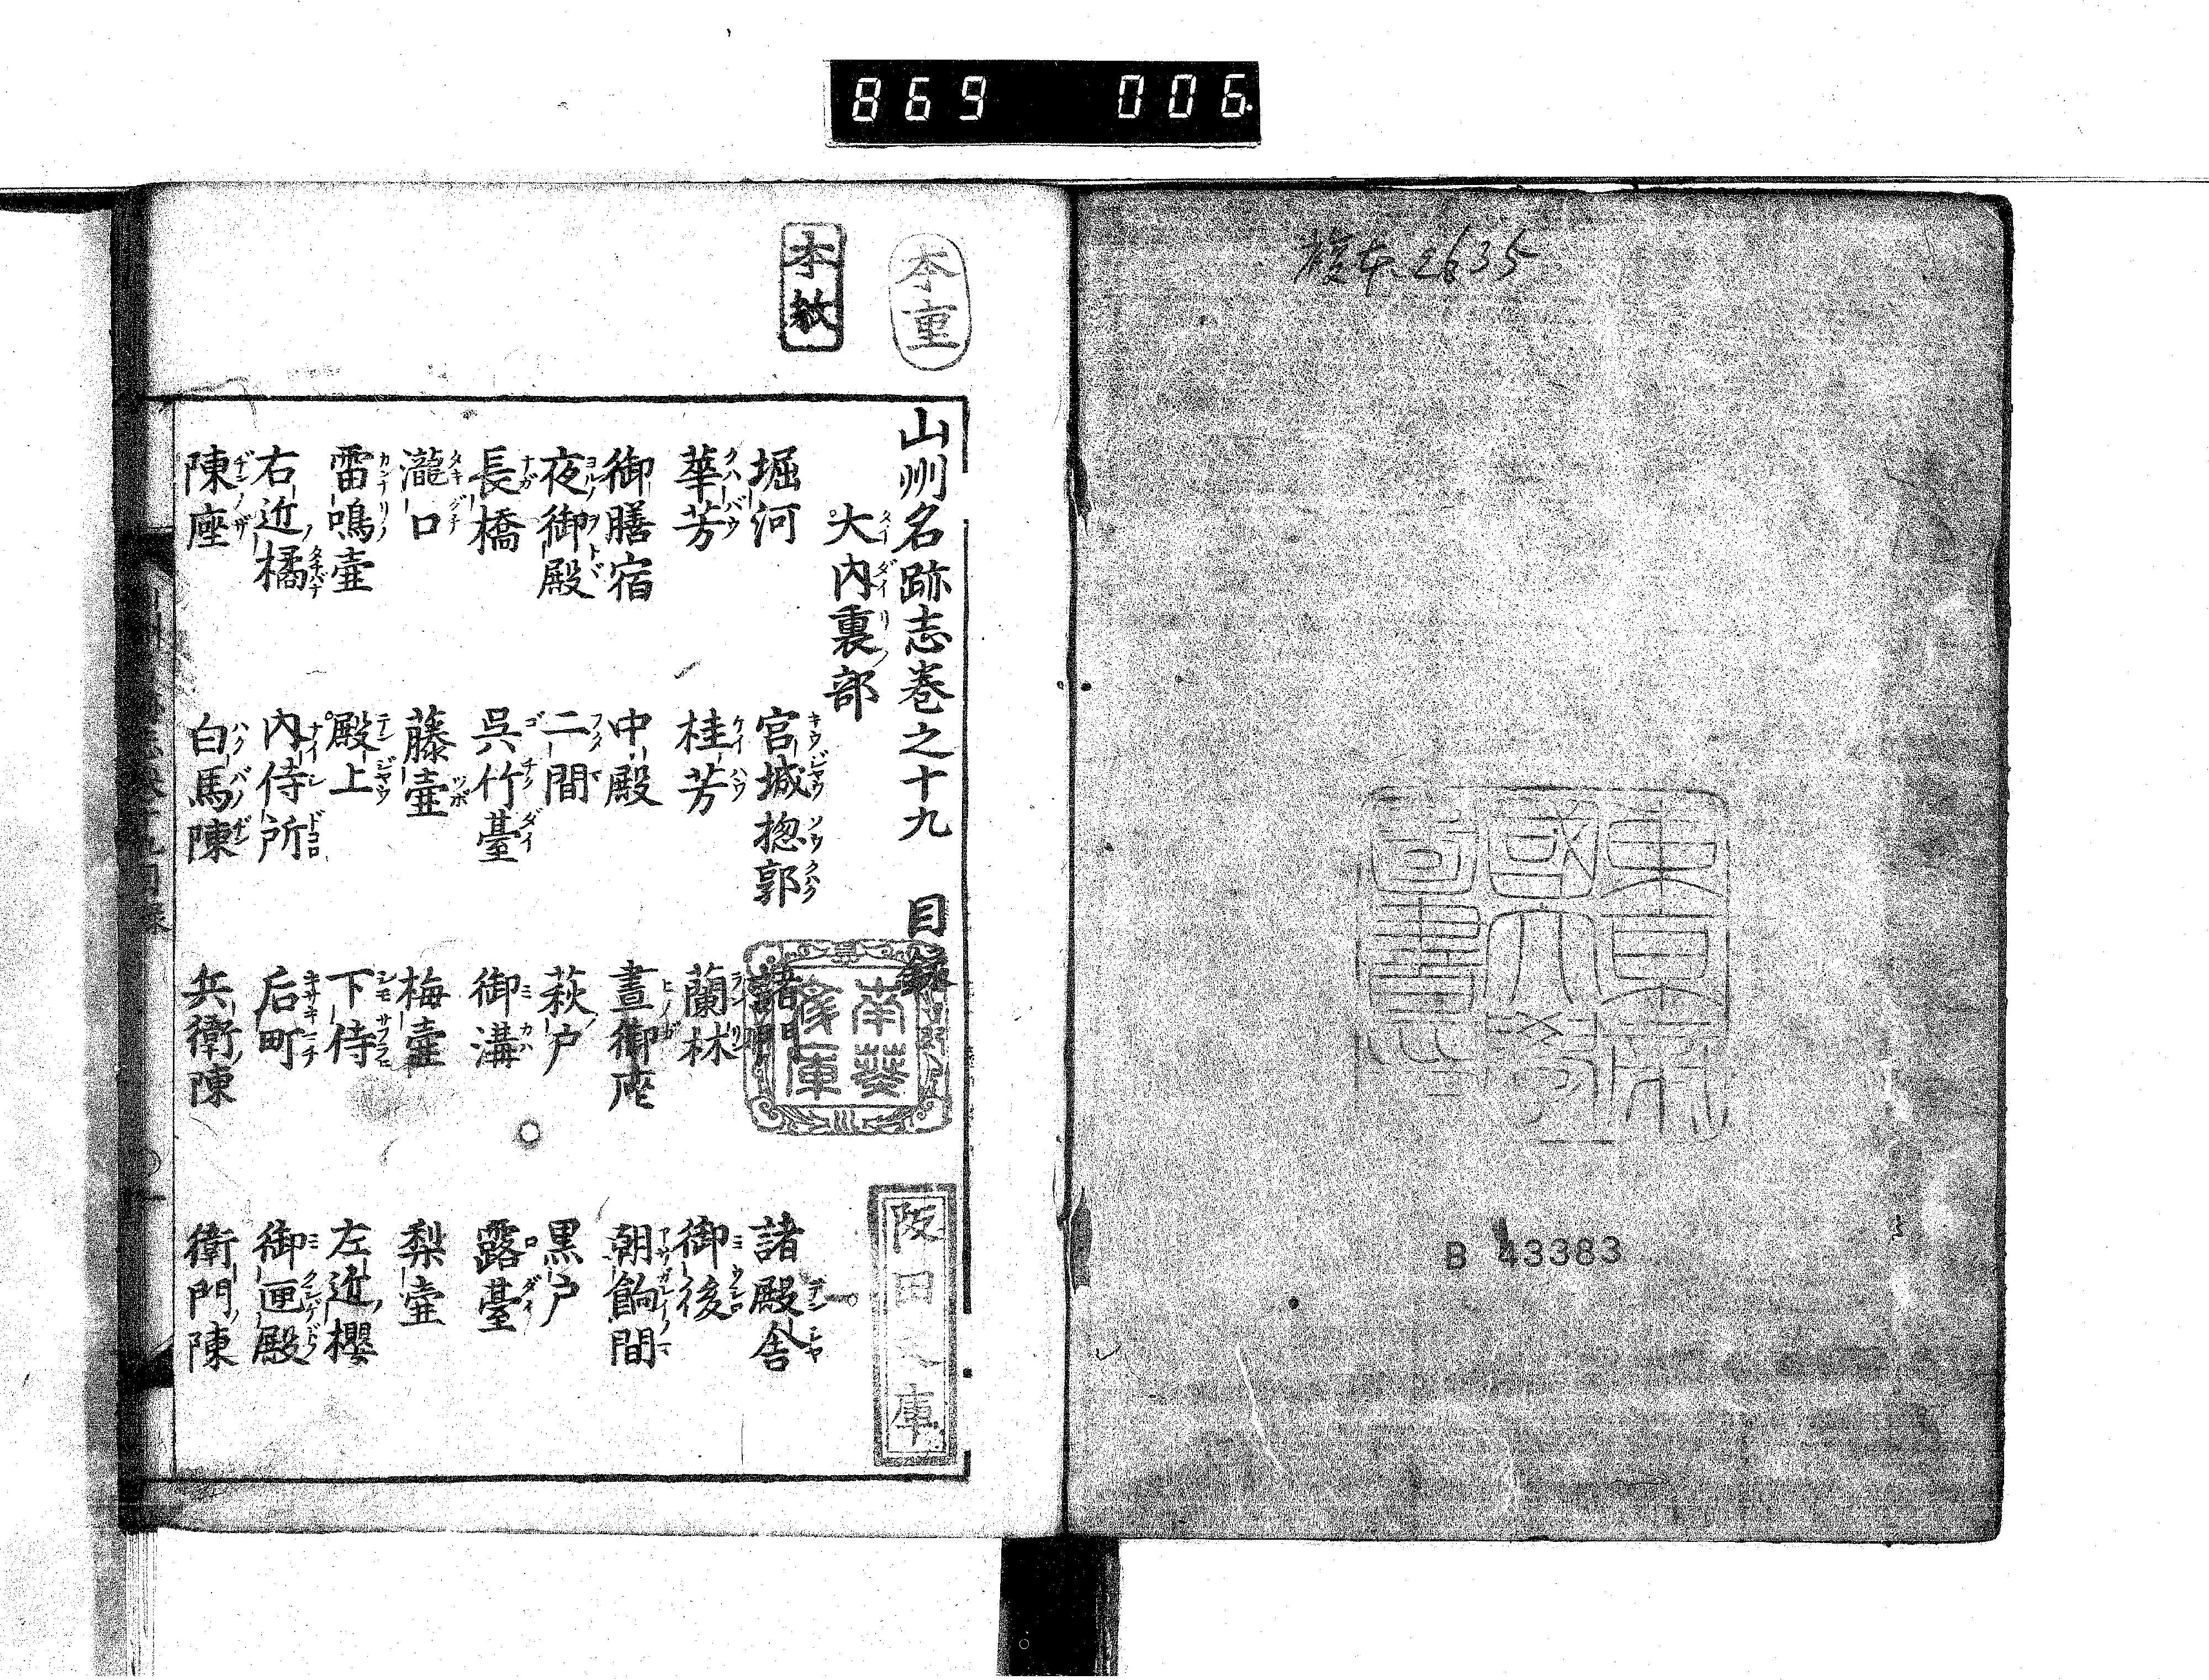 869 006
複本 2635
東京帝
國大學
圖書印
B 43383
本重
本教
山州名跡志巻之十九 目録
大内裏部
堀河 宮城惣郭 諸門 諸殿舎
華芳 桂芳 蘭林 御後
御膳宿 中殿 晝御座 朝餉間
夜御殿 二間 萩戸 黒戸
長橋 呉竹臺 御溝 露臺
瀧口 藤壷 梅壷 梨壷
雷鳴壷 殿上 下侍 左近櫻
右近橘 内侍所 后町 御匣殿
陳座 白馬陳 兵衛陳 衛門陳
南葵
文庫
阪田文庫